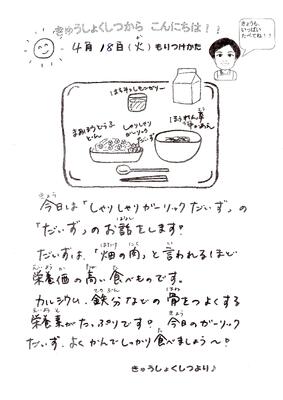 きゅうしょくしつから こんにちは！！
4月 18日(火) もりつけかた
きょうも、
いっぱい
たべてね！！
はちみつレモンゼリー
まあぼうどうふ
どん
しゃりしゃり
ガーリック
だいず
ほうれん草
きょう
今日は「しゃりしゃりガーリックだいず」の
はなし
「だいず」のお話をします！
はたけ にく い
だいずは、「畑の肉」と言われるほど
えいようか たか た
栄養価の高い食べものです。
てつぶん ほね
カルシウム、鉄分などの骨をつよくする
えいようそ きょう
栄養素がたっぷりです！ 今日のガーリック
た
だいず、よくかんでしっかり食べましょう～！
きゅうしょくしつより♪